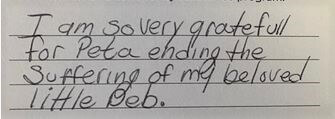 I am so very gratefull
for Peta ending the
Suffering of my beloved
little Deb.